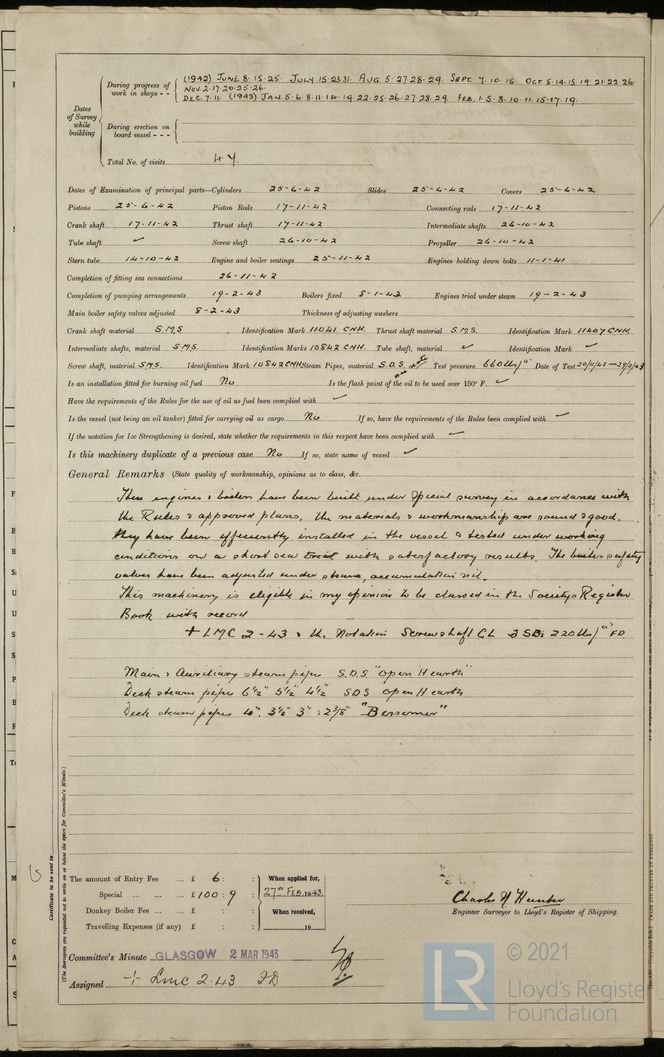 (1942) JUNE 8.15.25 JULY 15.23.31. AUG. 5.27.28.29. SEPT. 7.10.15. OCT. 5.14.15.19.21.22.26.
During progress of work in shops - -
NOV. 2.17.20.25.26.
DEC. 7.11. (1943) JAN. 5.6.8.11.14.19.22.25.26.27.28.29. FEB. 1.5.8.10.11.15.17.19.
Dates of Survey while building
During erection on board vessel - - -
Total No. of visits 47.
Dates of Examination of principal parts—Cylinders 25-6-42 Slides 25-6-42 Covers 25-6-42
Pistons 25-6-42 Piston Rods 17-11-42 Connecting rods 17-11-42
Crank shaft 17-11-42 Thrust shaft 17-11-42 Intermediate shafts 26-10-42
Tube shaft ✓ Screw shaft 26-10-42 Propeller 26-10-42
Stern tube 14-10-42 Engine and boiler seatings 25-11-42 Engines holding down bolts 11-1-41
Completion of fitting sea connections 26-11-42
Completion of pumping arrangements 19-2-43 Boilers fixed 8-1-42 Engines tried under steam 19-2-43
Main boiler safety valves adjusted 8-2-43 Thickness of adjusting washers
Crank shaft material S.M.S Identification Mark 11041 CNH. Thrust shaft material S.M.S. Identification Mark 11407 CNH
Intermediate shafts, material S.M.S Identification Marks 10842 CNH. Tube shaft, material ✓ Identification Mark ✓
Screw shaft, material S.M.S. Identification Mark 10842 CNH Steam Pipes, material S.D.S Test pressure 660 lbs/□" Date of Test
Is an installation fitted for burning oil fuel No Is the flash point of the oil to be used over 150° F. ✓
Have the requirements of the Rules for the use of oil as fuel been complied with ✓
Is the vessel (not being an oil tanker) fitted for carrying oil as cargo No If so, have the requirements of the Rules been complied with ✓
If the notation for Ice Strengthening is desired, state whether the requirements in this respect have been complied with ✓
Is this machinery duplicate of a previous case No If so, state name of vessel ✓
General Remarks (State quality of workmanship, opinions as to class, &c.
These engines & boilers have been built under special survey in accordance with
the Rules & approved plans. The materials & workmanship are sound & good.
they have been efficiently installed in the vessel & tested under working
conditions on a short sea trial with satisfactory results. The boiler safety
valves have been adjusted under steam, accumulation nil.
This machinery is eligible in my opinion to be classed in the Society's Register
Book with record
+ LMC 2-43 & the Notation Screwshaft CL 3 SB. 220 lb/□" FD
Main & Auxiliary steam pipes S.D.S "Open Hearth"
Deck steam pipes 6½" 5½" 4½" SDS Open Hearth
Deck steam pipes 4". 3½" 3" : 2⅜" "Bessemer"
Certificate to be sent to
(The Surveyors are requested not to write on or below the space for Committee's Minute.)
The amount of Entry Fee ... £ 6 : : When applied for,
Special ... ... ... £ 100 : 9 : 27th FEB. 1943
Donkey Boiler Fee ... £ : : When received,
Travelling Expenses (if any) £ : : 19
Charles N Hunter
Engineer Surveyor to Lloyd's Register of Shipping.
Committee's Minute GLASGOW 2 MAR 1943
Assigned + Lmc 2.43 FD
© 2021
LR
Lloyd's Register
Foundation